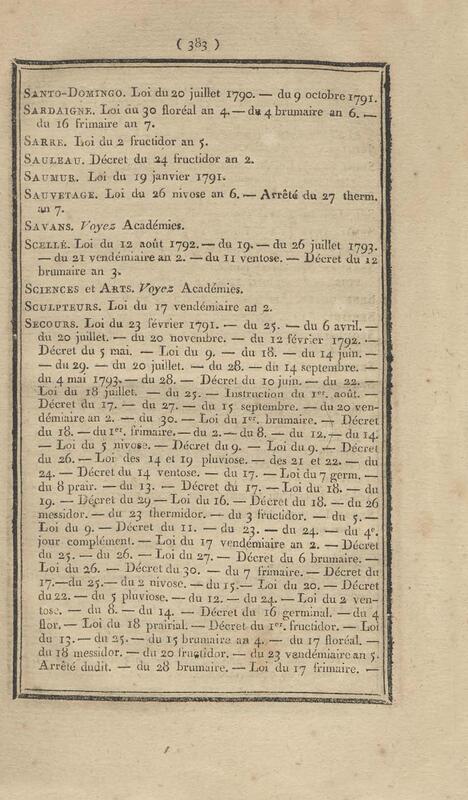 ( 383 )
SANTO-DOMINGO. Loi du 20 juillet 1790. — du 9 octobre 1791.
SARDAIGNE. Loi du 30 floréal an 4. — du 4 brumaire an 6. —
du 16 frimaire an 7.
SARRE. Loi du 2 fructidor an 5.
SAULEAU. Décret du 24 fructidor an 2.
SAUMUR. Loi du 19 janvier 1791.
SAUVETAGE. Loi du 26 nivose an 6. — Arrêté du 27 therm.
an 7.
SAVANS. Voyez Académies.
SCELLÉ. Loi du 12 août 1792. — du 19. — du 26 juillet 1793.
— du 21 vendémiaire an 2. — du 11 ventose. — Décret du 12
brumaire an 3.
SCIENCES et ARTS. Voyez Académies.
SCULPTEURS. Loi du 17 vendémiaire an 2.
SECOURS. Loi du 23 février 1791. — du 25. — du 6 avril. —
du 20 juillet. — du 20 novembre. — du 12 février 1792. —
Décret du 5 mai. — Loi du 9. — du 18. — du 14 juin. —
— du 29. — du 20 juillet. — du 28. — du 14 septembre. —
du 4 mai 1793. — du 28. — Décret du 10 juin. — du 22. —
Loi du 18 juillet. — du 25. — Instruction du 1er. août. —
Décret du 17. — du 27. — du 15 septembre. — du 20 ven-
démiaire an 2. — du 30. — Loi du 1er. brumaire. — Décret
du 18. — du 1er. frimaire. — du 2. — du 8. — du 12. — du 14.
— Loi du 5 nivose. — Décret du 9. — Loi du 9. — Décret
du 26. — Loi des 14 et 19 pluviose. — des 21 et 22. — du
24. — Décret du 14 ventose. — du 17. — Loi du 7 germ. —
du 8 prair. — du 13. — Décret du 17. — Loi du 18. — du
19. — Décret du 29 — Loi du 16. — Décret du 18. — du 26
messidor. — du 23 thermidor. — du 3 fructidor. — du 5. —
Loi du 9. — Décret du 11. — du 23. — du 24. — du 4e.
jour complément. — Loi du 17 vendémiaire an 2. — Décret
du 25. — du 26. — Loi du 27. — Décret du 6 brumaire. —
Loi du 26. — Décret du 30. — du 7 frimaire. — Décret du
17. — du 25. — du 2 nivose. — du 15. — Loi du 20. — Décret
du 22. — du 5 pluviose. — du 12. — du 24. — Loi du 2 ven-
tose. — du 8. — du 14. — Décret du 16 germinal. — du 4
flor. — Loi du 18 prairial. — Décret du 1er. fructidor. — Loi
du 13. — du 25. — du 15 brumaire an 4. — du 17 floréal. —
du 18 messidor. — du 20 fructidor. — du 23 vendémiaire an 5.
Arrêté dudit. — du 28 brumaire. — Loi du 17 frimaire. —